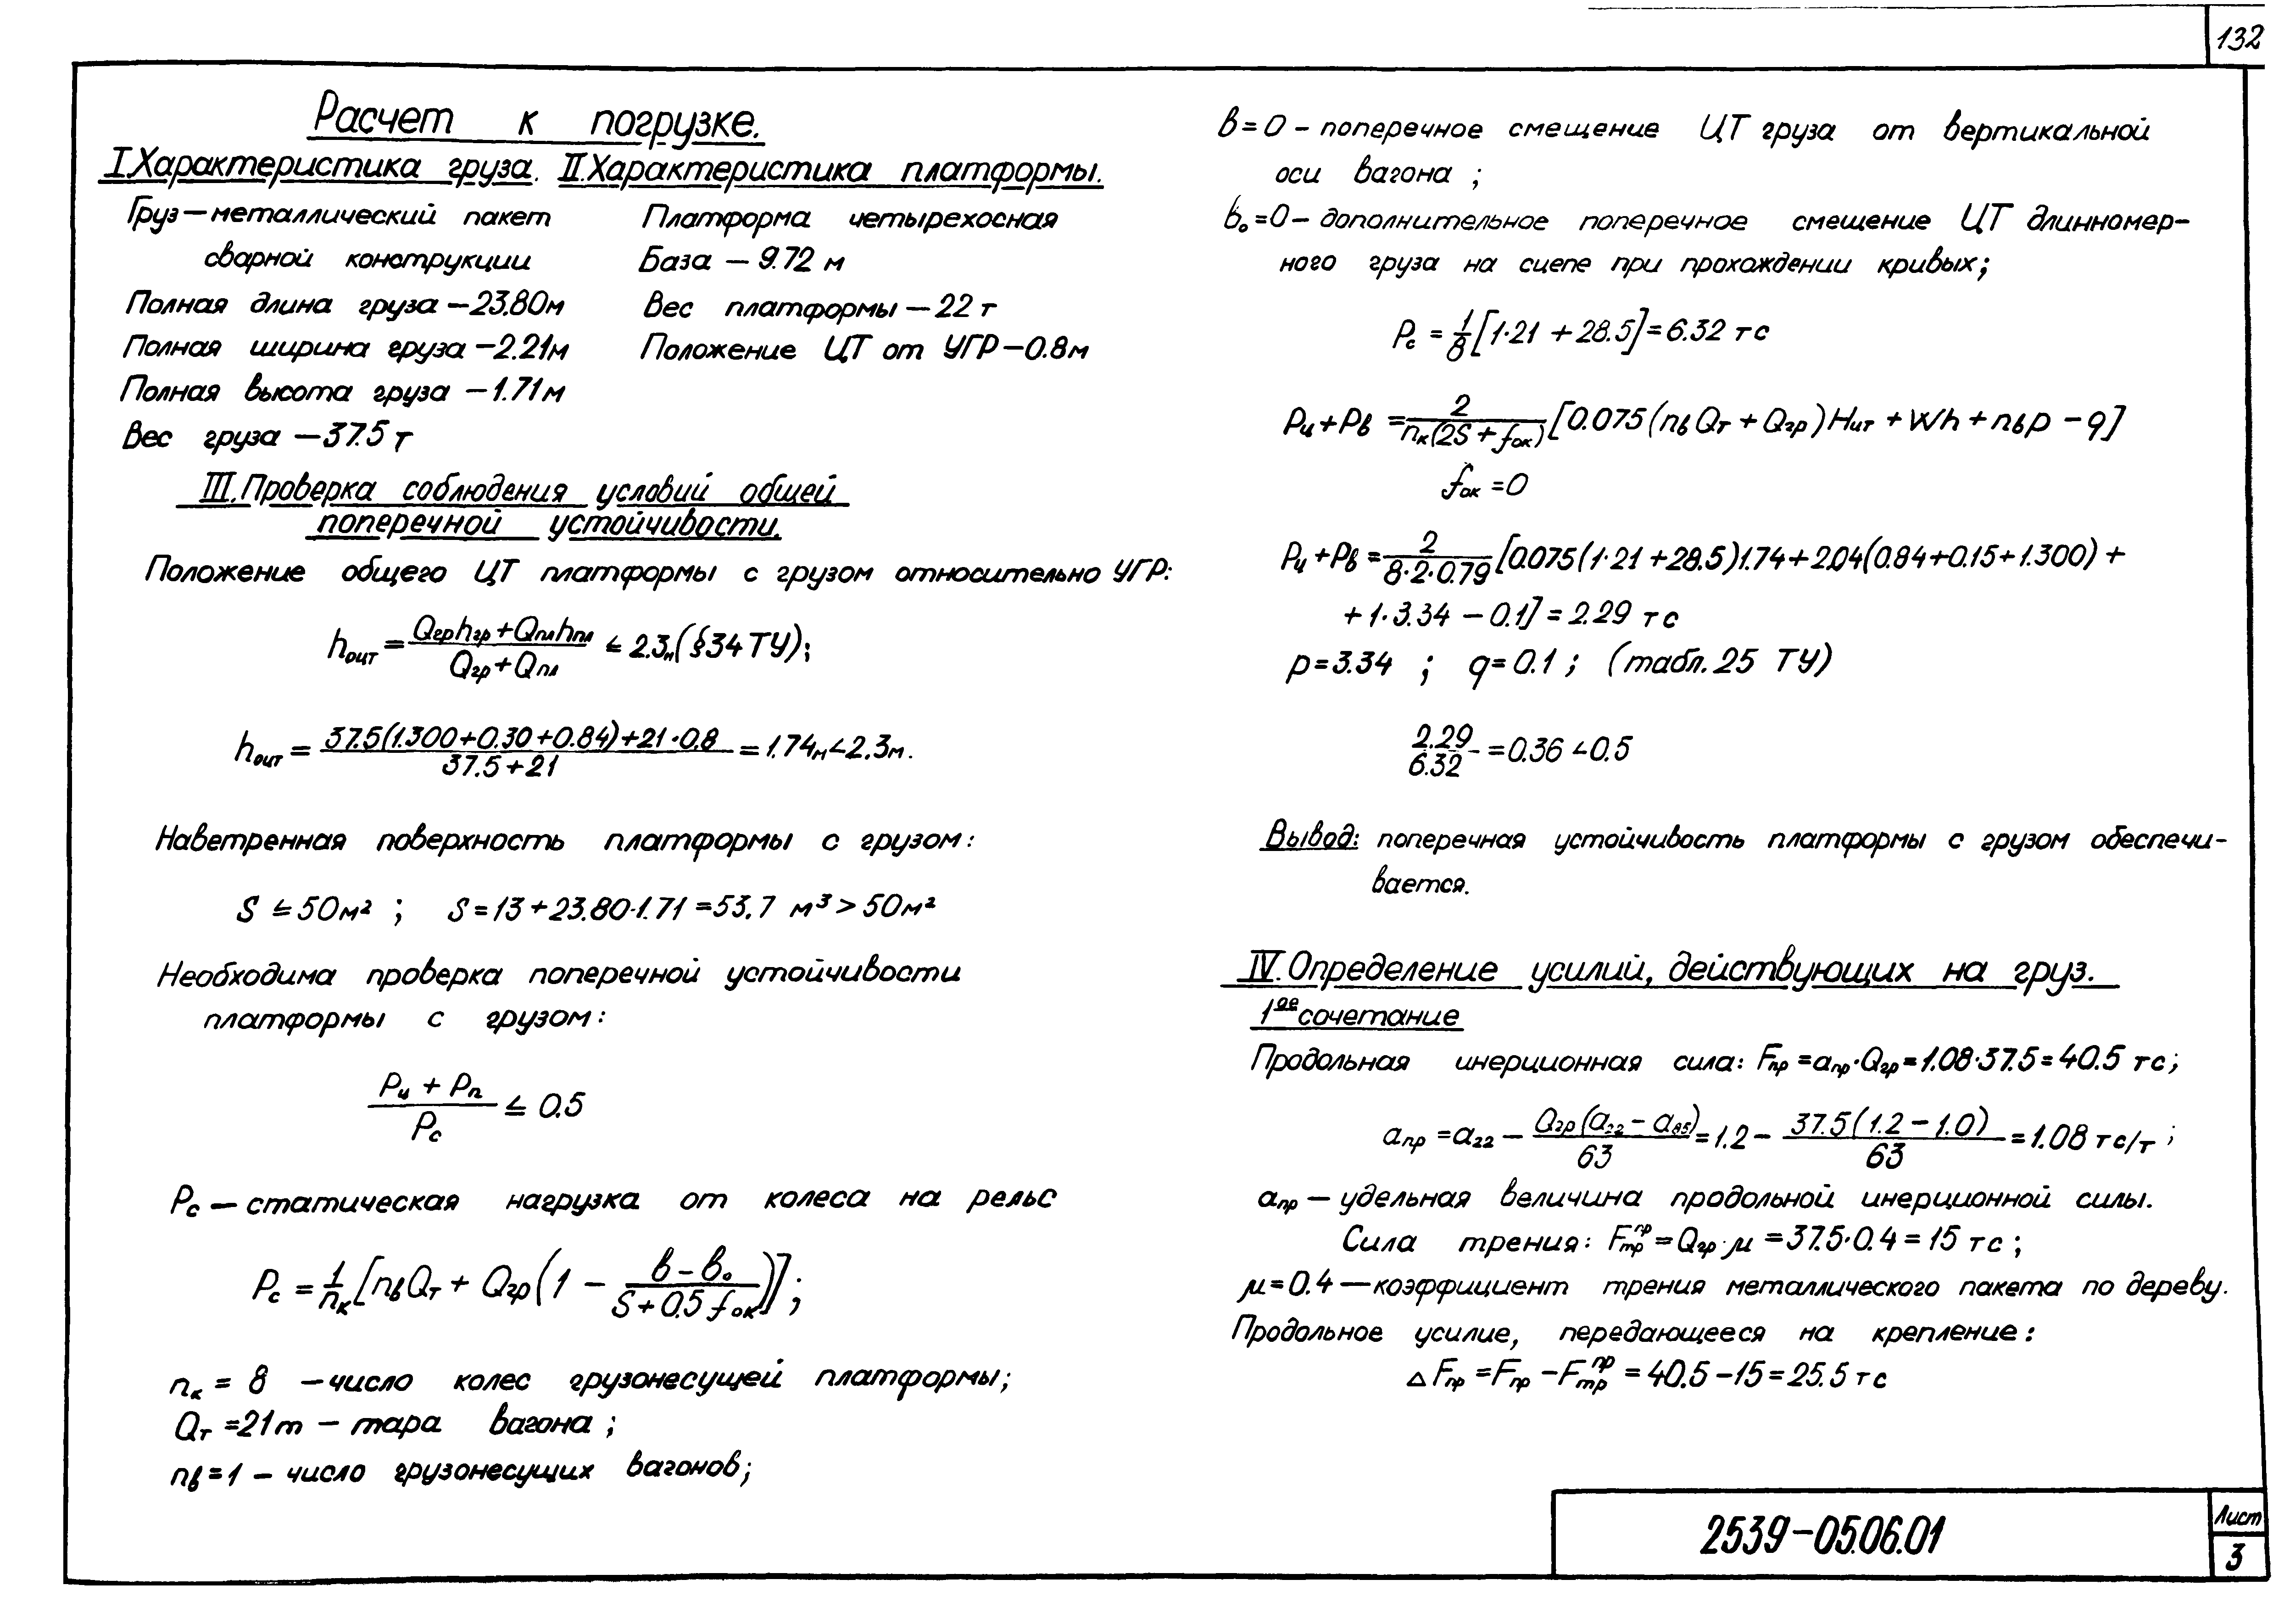 132
Расчет к погрузке.
I. Характеристика груза. II. Характеристика платформы.
Груз — металлический пакет
сварной конструкции
Полная длина груза — 23.80м
Полная ширина груза — 2.21м
Полная высота груза — 1.71м
Вес груза — 37.5 т
Платформа четырехосная
База — 9.72 м
Вес платформы — 22 т
Положение ЦТ от УГР — 0.8м
III. Проверка соблюдения условий общей
поперечной устойчивости.
Положение общего ЦТ платформы с грузом относительно УГР:
hоцт = (Qгр hгр + Qпл hпл) / (Qгр + Qпл) ≤ 2.3м (§34 ТУ);
hоцт = (37.5(1.300+0.30+0.84)+21·0.8) / (37.5+21) = 1.74м < 2.3м.
Наветренная поверхность платформы с грузом:
S ≤ 50м² ; S = 13 + 23.80·1.71 = 53.7 м³ > 50м²
Необходима проверка поперечной устойчивости
платформы с грузом:
(Рц + Рп) / Рс ≤ 0.5
Рс — статическая нагрузка от колеса на рельс
Рс = 1/nк [nв Qт + Qгр (1 − (в − в₀) / (S + 0.5 fок))];
nк = 8 — число колес грузонесущей платформы;
Qт = 21т — тара вагона ;
nв = 1 — число грузонесущих вагонов;
в = 0 — поперечное смещение ЦТ груза от вертикальной
оси вагона ;
b₀ = 0 — дополнительное поперечное смещение ЦТ длинномер-
ного груза на сцепе при прохождении кривых;
Рс = 1/8 [1·21 + 28.5] = 6.32 тс
Рц + Рв = 2 / (nк(2S + fок)) [0.075(nв Qт + Qгр) Hцт + Wh + nв p − q]
fок = 0
Рц + Рв = 2 / (8·2·0.79) [0.075(1·21 + 28.5)1.74 + 2.04(0.84 + 0.15 + 1.300) +
+ 1·3.34 − 0.1] = 2.29 тс
p = 3.34 ; q = 0.1 ; (табл. 25 ТУ)
2.29 / 6.32 = 0.36 < 0.5
Вывод: поперечная устойчивость платформы с грузом обеспечи-
вается.
IV. Определение усилий, действующих на груз.
1ое сочетание
Продольная инерционная сила: Fпр = aпр·Qгр = 1.08·37.5 = 40.5 тс;
aпр = a22 − Qгр(a22 − a85) / 63 = 1.2 − 37.5(1.2 − 1.0) / 63 = 1.08 тс/т ;
aпр — удельная величина продольной инерционной силы.
Сила трения: Fтр^пр = Qгр·μ = 37.5·0.4 = 15 тс ;
μ = 0.4 — коэффициент трения металлического пакета по дереву.
Продольное усилие, передающееся на крепление:
△Fпр = Fпр − Fтр^пр = 40.5 − 15 = 25.5 тс
2539-05.06.01
Лист
3